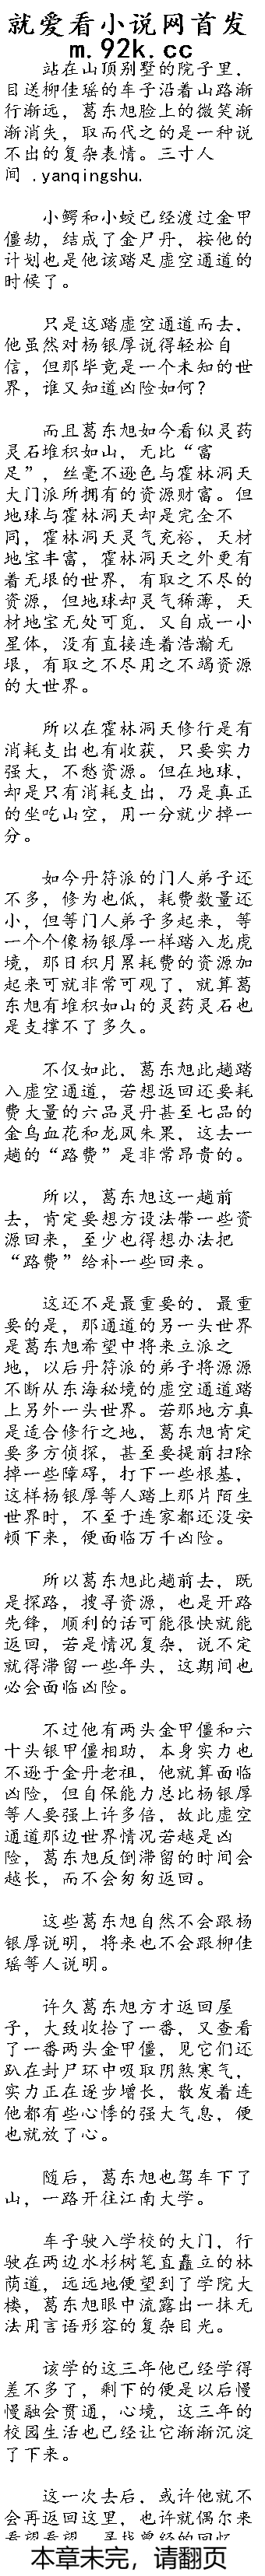 就爱看小说网首发
m.92k.cc
站在山顶别墅的院子里，
目送柳佳瑶的车子沿着山路渐
行渐远，葛东旭脸上的微笑渐
渐消失，取而代之的是一种说
不出的复杂表情。三寸人
间 .yanqingshu.
小鳄和小蛟已经渡过金甲
僵劫，结成了金尸丹，按他的
计划也是他该踏足虚空通道的
时候了。
只是这踏虚空通道而去，
他虽然对杨银厚说得轻松自
信，但那毕竟是一个未知的世
界，谁又知道凶险如何？
而且葛东旭如今看似灵药
灵石堆积如山，无比“富
足”，丝毫不逊色与霍林洞天
大门派所拥有的资源财富。但
地球与霍林洞天却是完全不
同，霍林洞天灵气充裕，天材
地宝丰富，霍林洞天之外更有
着无垠的世界，有取之不尽的
资源，但地球却灵气稀薄，天
材地宝无处可觅，又自成一小
星体，没有直接连着浩瀚无
垠，有取之不尽用之不竭资源
的大世界。
所以在霍林洞天修行是有
消耗支出也有收获，只要实力
强大，不愁资源。但在地球，
却是只有消耗支出，乃是真正
的坐吃山空，用一分就少掉一
分。
如今丹符派的门人弟子还
不多，修为也低，耗费数量还
小，但等门人弟子多起来，等
一个个像杨银厚一样踏入龙虎
境，那日积月累耗费的资源加
起来可就非常可观了，就算葛
东旭有堆积如山的灵药灵石也
是支撑不了多久。
不仅如此，葛东旭此趟踏
入虚空通道，若想返回还要耗
费大量的六品灵丹甚至七品的
金乌血花和龙凤朱果，这去一
趟的“路费”是非常昂贵的。
所以，葛东旭这一趟前
去，肯定要想方设法带一些资
源回来，至少也得想办法把
“路费”给补一些回来。
这还不是最重要的，最重
要的是，那通道的另一头世界
是葛东旭希望中将来立派之
地，以后丹符派的弟子将源源
不断从东海秘境的虚空通道踏
上另外一头世界。若那地方真
是适合修行之地，葛东旭肯定
要多方侦探，甚至要提前扫除
掉一些障碍，打下一些根基，
这样杨银厚等人踏上那片陌生
世界时，不至于连家都还没安
顿下来，便面临万千凶险。
所以葛东旭此趟前去，既
是探路，搜寻资源，也是开路
先锋，顺利的话可能很快就能
返回，若是情况复杂，说不定
就得滞留一些年头，这期间也
必会面临凶险。
不过他有两头金甲僵和六
十头银甲僵相助，本身实力也
不逊于金丹老祖，他就算面临
凶险，但自保能力总比杨银厚
等人要强上许多倍，故此虚空
通道那边世界情况若越是凶
险，葛东旭反倒滞留的时间会
越长，而不会匆匆返回。
这些葛东旭自然不会跟杨
银厚说明，将来也不会跟柳佳
瑶等人说明。
许久葛东旭方才返回屋
子，大致收拾了一番，又查看
了一番两头金甲僵，见它们还
趴在封尸环中吸取阴煞寒气，
实力正在逐步增长，散发着连
他都有些心悸的强大气息，便
也就放了心。
随后，葛东旭也驾车下了
山，一路开往江南大学。
车子驶入学校的大门，行
驶在两边水杉树笔直矗立的林
荫道，远远地便望到了学院大
楼，葛东旭眼中流露出一抹无
法用言语形容的复杂目光。
该学的这三年他已经学得
差不多了，剩下的便是以后慢
慢融会贯通，心境，这三年的
校园生活也已经让它渐渐沉淀
了下来。
这一次去后，或许他就不
会再返回这里，也许就偶尔来
看望看望，寻找曾经的回忆
本章未完，请翻页